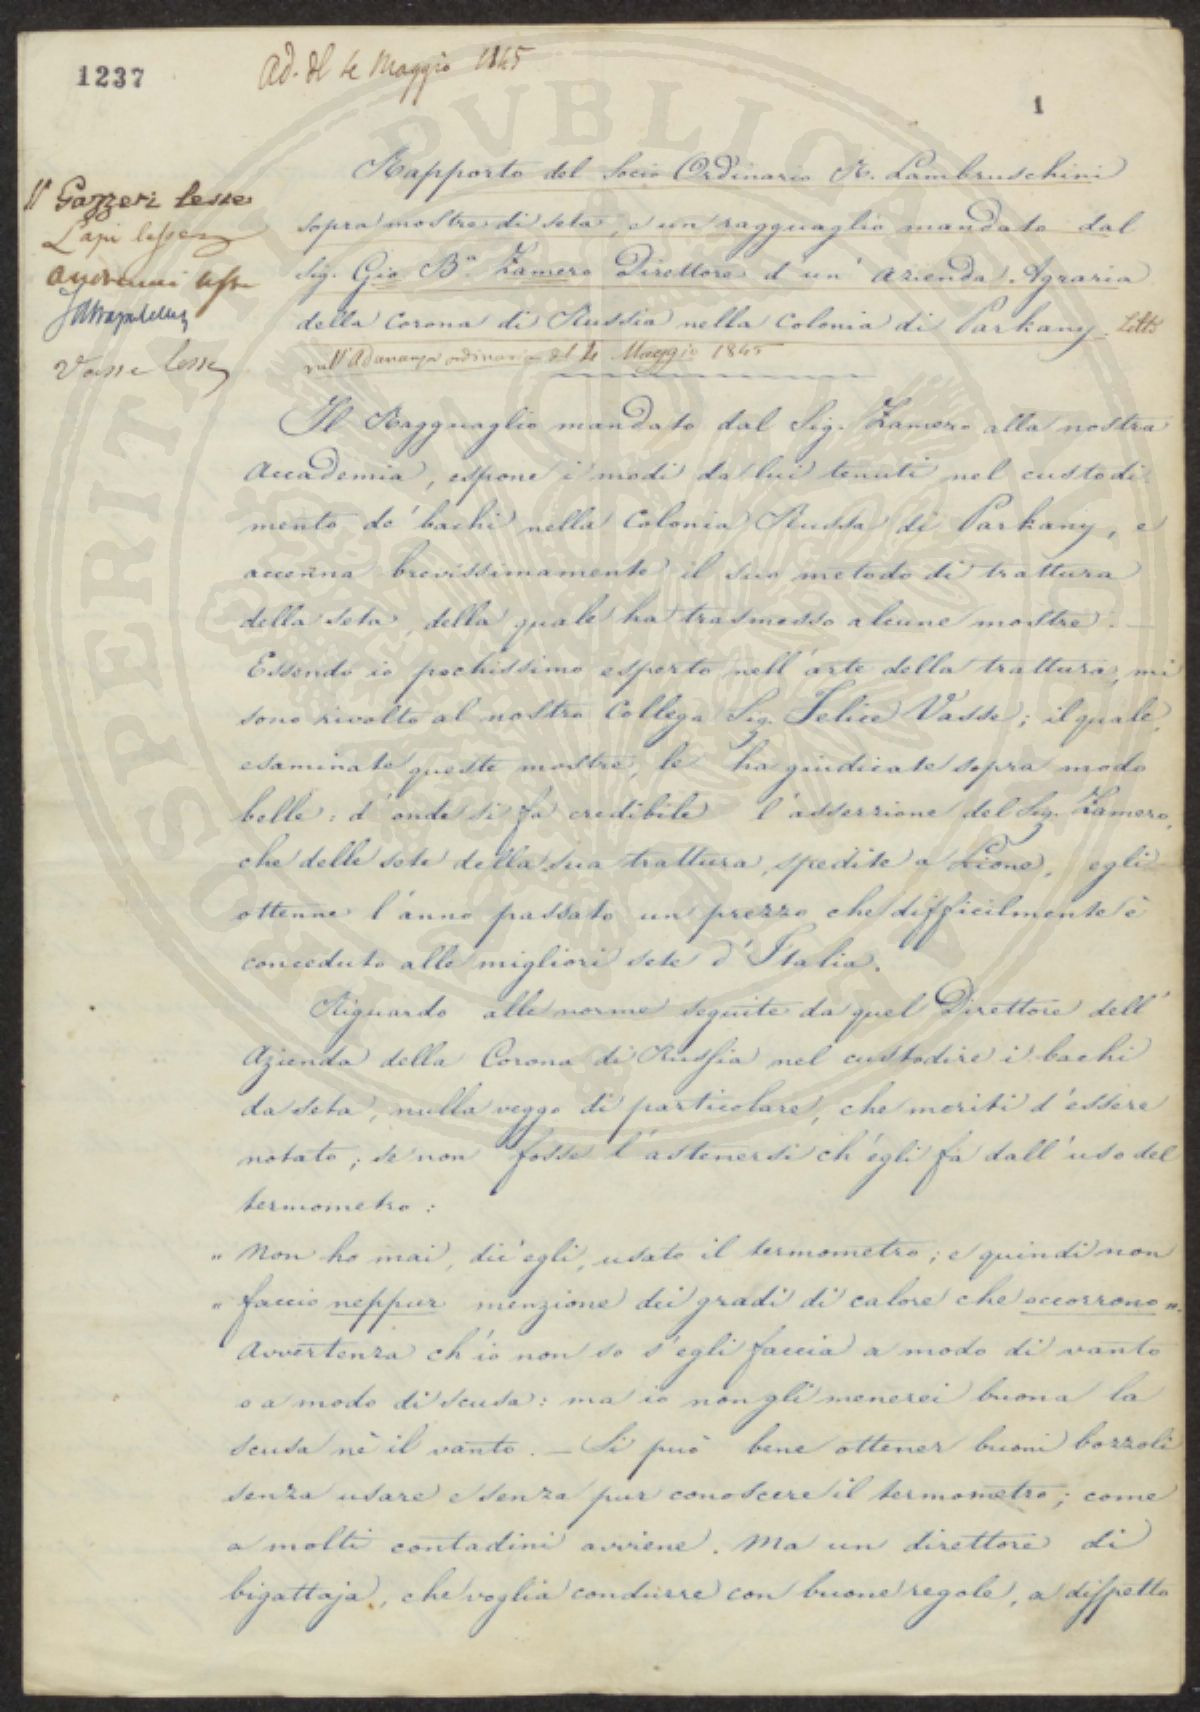 1237
Ad. del 4 Maggio 1845
1
Vº Gazzeri lesse
Lapi lesse
lesse
Vasse lesse
Rapporto del Socio Ordinario R. Lambruschini
sopra mostre di seta, e un ragguaglio mandato dal
Sig. Gio. Bª. Zamero Direttore d'un' Azienda Agraria
della Corona di Russia nella Colonia di Parkany. Letto
nell'Adunanza ordinaria del 4 Maggio 1845
Il Ragguaglio mandato dal Sig. Zamero alla nostra
Accademia, espone i modi da lui tenuti nel custodi-
mento de' bachi nella Colonia Russa di Parkany, e
accenna brevissimamente il suo metodo di trattura
della seta, della quale ha trasmesso alcune mostre. —
Essendo io pochissimo esperto nell'arte della trattura, mi
sono rivolto al nostro Collega Sig. Felice Vasse; il quale,
esaminate queste mostre, le ha giudicate sopra modo
belle: d'onde si fa credibile l'asserzione del Sig. Zamero,
che delle sete della sua trattura, spedite a Lione, egli
ottenne l'anno passato un prezzo che difficilmente è
conceduto alle migliori sete d'Italia.
Riguardo alle norme seguite da quel Direttore dell'
Azienda della Corona di Russia nel custodire i bachi
da seta, nulla veggo di particolare, che meriti d'essere
notato; se non fosse l'astenersi ch'egli fa dall'uso del
termometro:
" Non ho mai, dic'egli, usato il termometro; e quindi non
" faccio neppur menzione dei gradi di calore che occorrono ".
Avvertenza ch'io non so s'egli faccia a modo di vanto
o a modo di scusa: ma io non gli menerei buona la
scusa nè il vanto. — Si può bene ottener buoni bozzoli
senza usare e senza pur conoscere il termometro; come
a molti contadini avviene. Ma un direttore di
bigattaja, che voglia condurre con buone regole, a dispetto
PVBLICAE PROSPERITATI